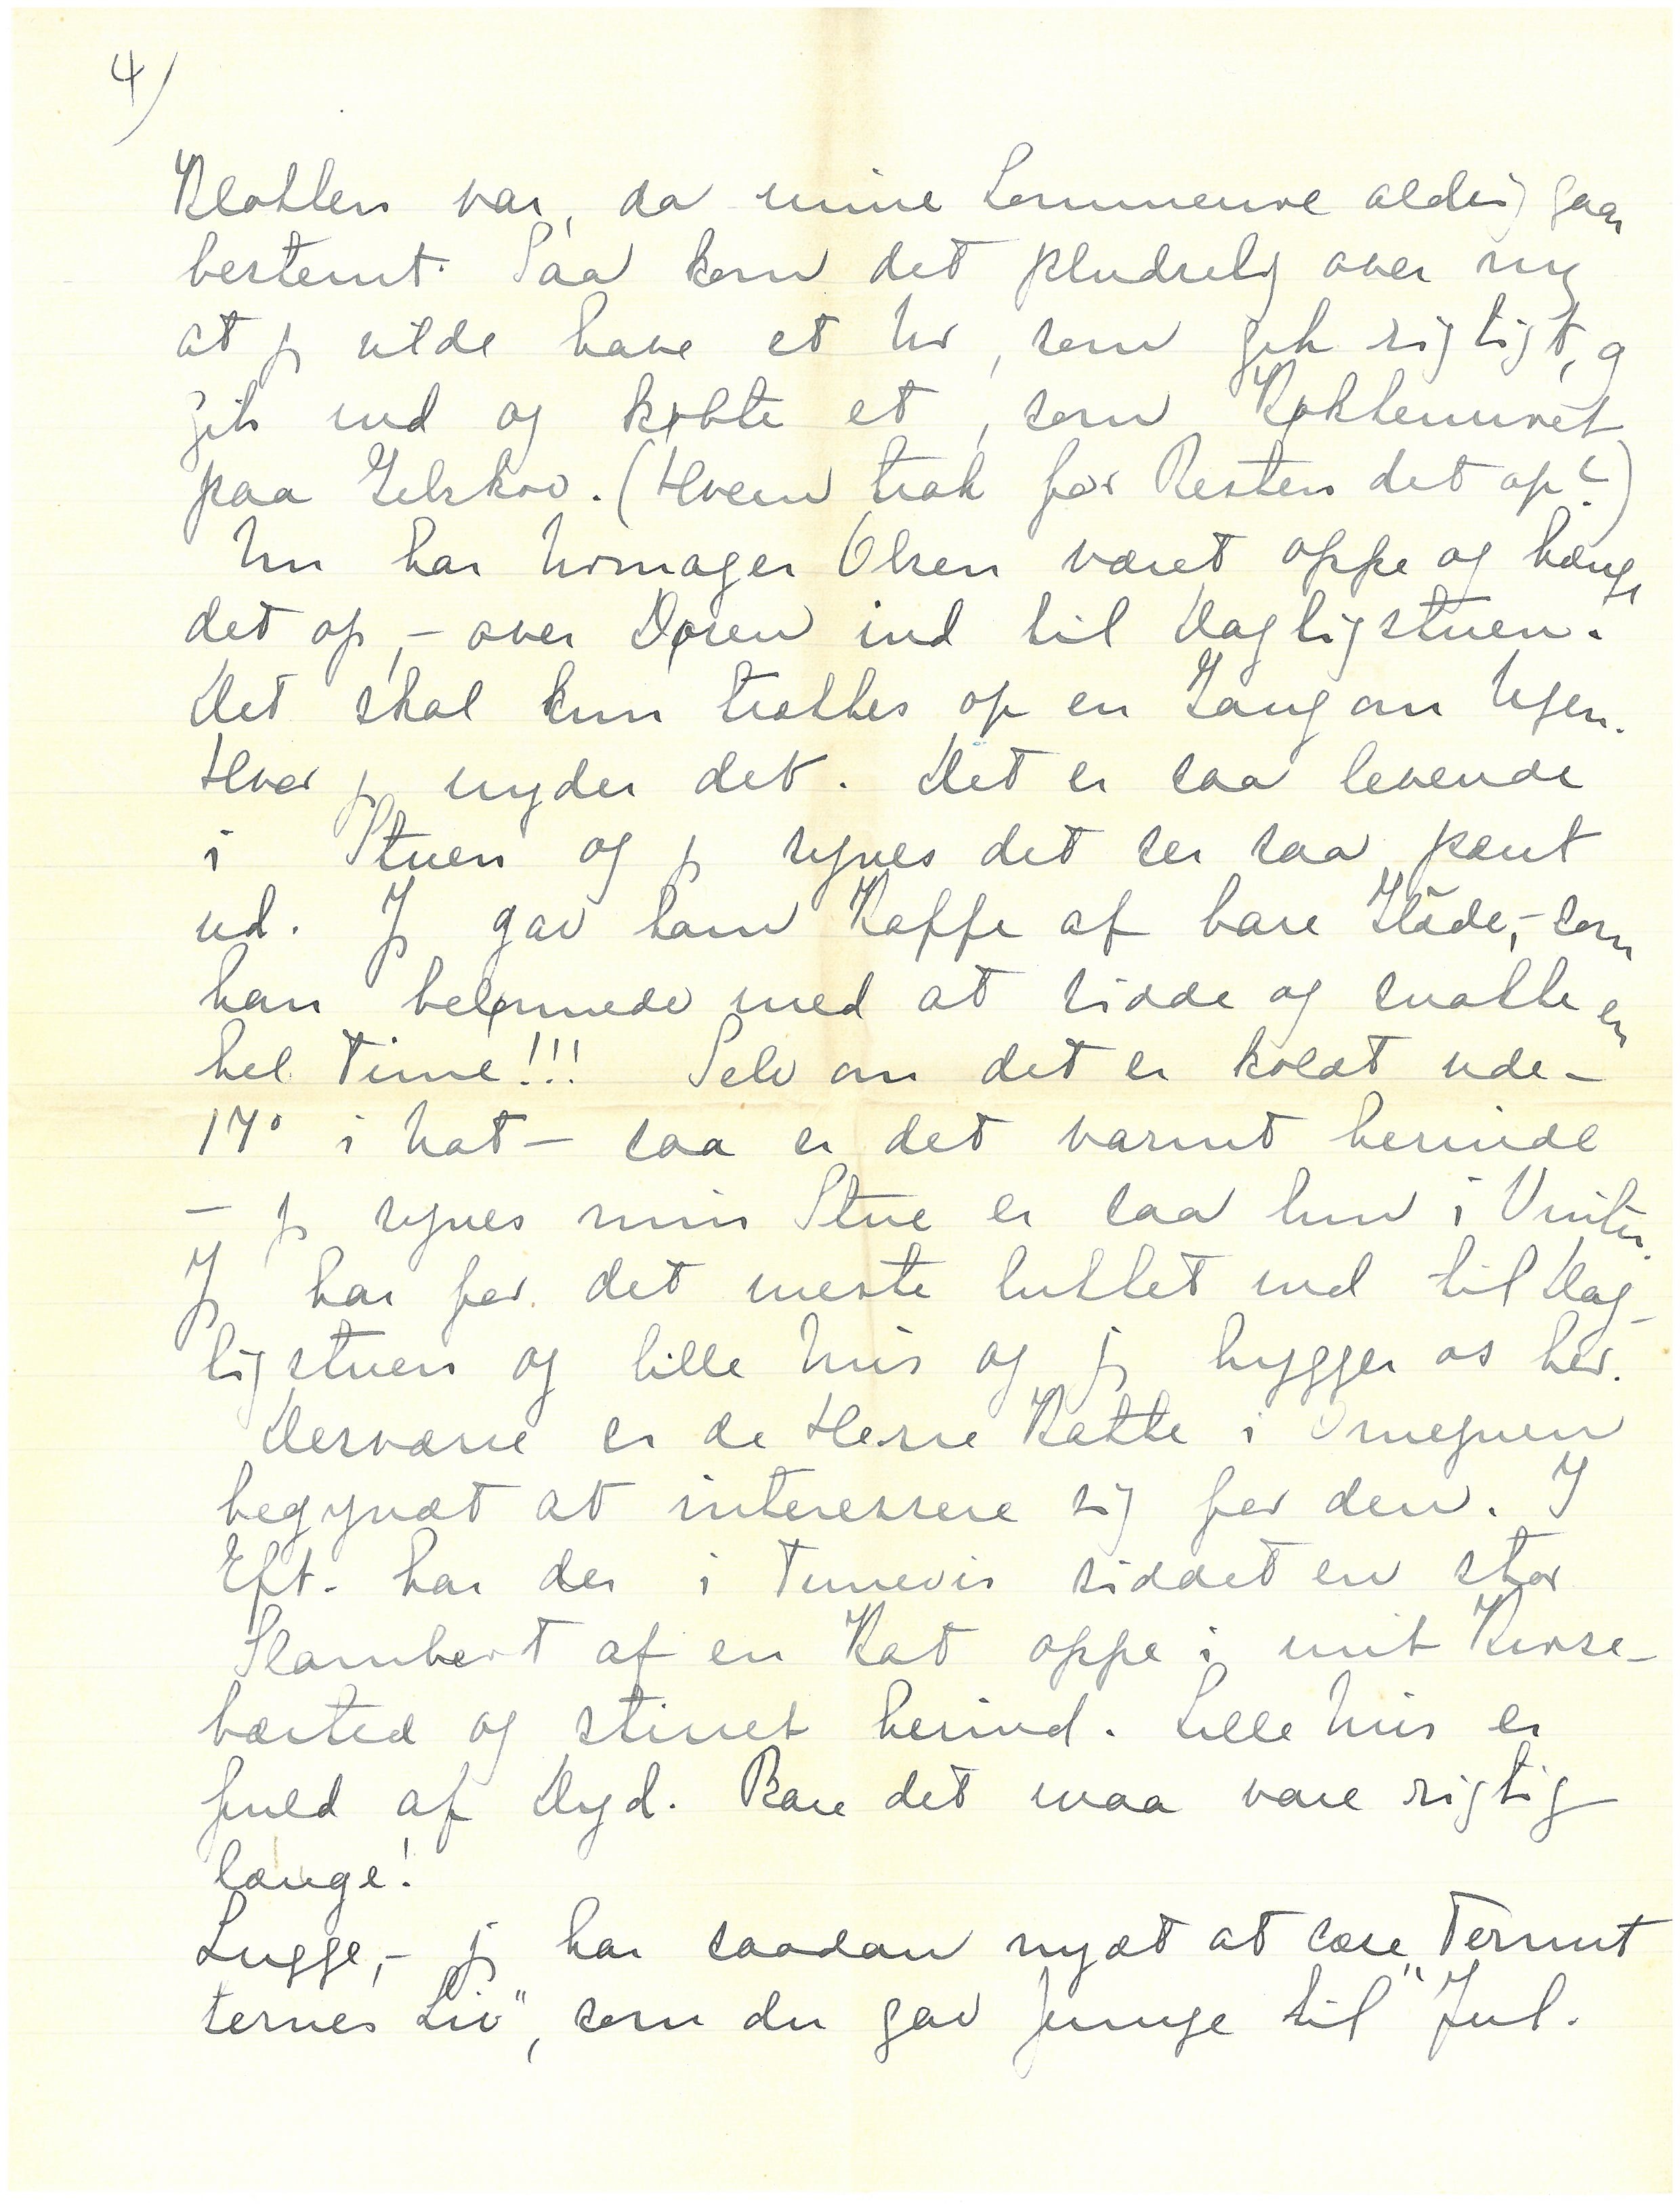 4)
Klokken var, da mine Lommeure aldrig gaar
bestemt. Saa kom det pludselig over mig
at jeg vilde have et Ur, som gik rigtigt, og
gik ind og købte et, som Køkkenuret
paa Erikshov. (Hvem trak for Resten det op?)
Nu har Urmager Olsen været oppe og hænge
det op, - over Døren ind til Dagligstuen.
Det skal kun trækkes op en Gang om Ugen.
Hvor jeg nyder det. Det er saa levende
i Stuen og jeg synes det ser saa pænt
ud. Jeg gav ham Kaffe af bare Glæde, - som
han belønnede med at sidde og snakke en
hel Time!!! Selv om det er koldt ude -
17° i Nat - saa er det varmt herinde
- jeg synes min Stue er saa lun i Vinter.
Jeg har for det meste lukket ind til Dag-
ligstuen og lille Mis og jeg hygger os her.
Desværre er de Herre Katte i Omegnen
begyndt at interessere sig for den. I
Eft. har der i Timevis siddet en stor
Slambert af en Kat oppe i mit Kirse-
bærtræ og stirret herind. Lille Mis er
fuld af Dyd. Bare det maa vare rigtig
længe!
Lugge, - jeg har saadan nydt at læse "Termit
ternes Liv", som du gav Junge til Jul.